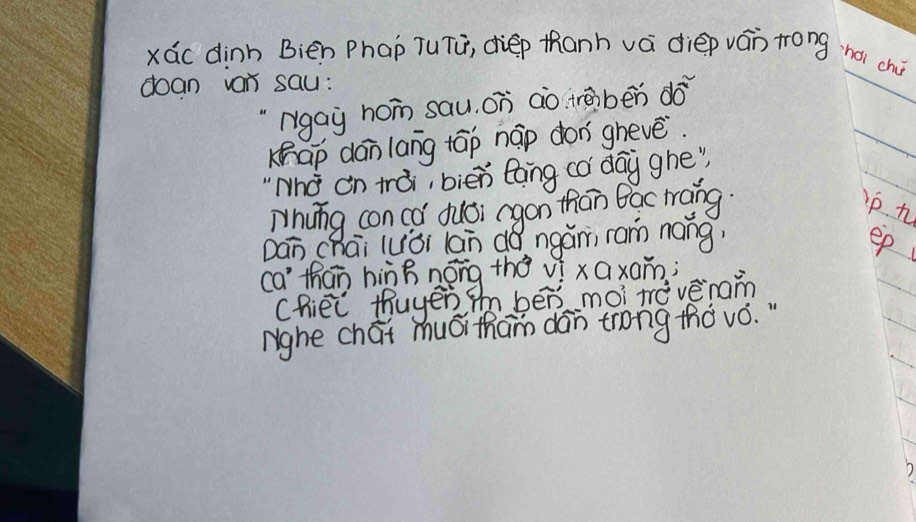 xác định Biện Pháp Tu Từ, điệp thanh và điệp vần trong
đoạn văn sau:
"Ngày hôm sau, ồn ào trên bến đỗ
Khắp dân làng tấp nập đón ghe về.
"Nhờ ơn trời, biển lặng cá đầy ghe",
Những con cá tươi ngon thân bạc trắng.
Dân chài lưới làn da ngăm rám nắng,
Cả thân hình nồng thở vị xa xăm;
Chiếc thuyền im bến mỏi trở về nằm
Nghe chất muối thấm dần trong thớ vỏ."
hơi chữ
ép